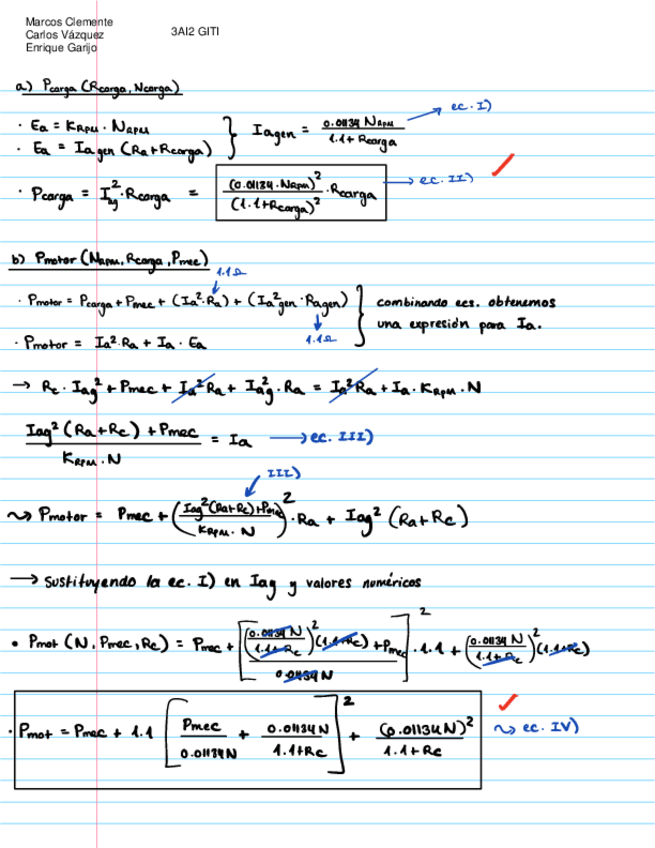 Marcos Clemente
Carlos Vázquez
Enrique Garijo
3AI2 GITI
a) Pcarga (Rcarga, Ncarga)
· Ea = KRPM · NRPM
· Ea = Ia gen (Ra + Rcarga)
} Iagen = 0.01134 NRPM / 1.1 + Rcarga → ec. I)
· Pcarga = Iag² · Rcarga = (0.01134 · NRPM)² / (1.1 + Rcarga)² · Rcarga → ec. II) ✓
b) Pmotor (NRPM, Rcarga, Pmec)
1.1Ω
· Pmotor = Pcarga + Pmec + (Ia² · Ra) + (Ia²gen · Ragen)
1.1Ω
· Pmotor = Ia² · Ra + Ia · Ea
} combinando ecs. obtenemos
una expresión para Ia.
→ Rc · Iag² + Pmec + Ia² Ra + Iag² · Ra = Ia² Ra + Ia · KRPM · N
Iag² (Ra + Rc) + Pmec / KRPM · N = Ia → ec. III)
III)
⤳ Pmotor = Pmec + (Iag² (Ra + Rc) + Pmec / KRPM · N)² · Ra + Iag² (Ra + Rc)
→ Sustituyendo la ec. I) en Iag y valores numéricos
• Pmot (N, Pmec, Rc) = Pmec + [(0.01134 N / 1.1 + Rc)² (1.1 + Rc) + Pmec / 0.01134 N]² · 1.1 + (0.01134 N / 1.1 + Rc)² (1.1 + Rc)
· Pmot = Pmec + 1.1 [Pmec / 0.01134 N + 0.01134 N / 1.1 + Rc]² + (0.01134 N)² / 1.1 + Rc ✓ ⤳ ec. IV)